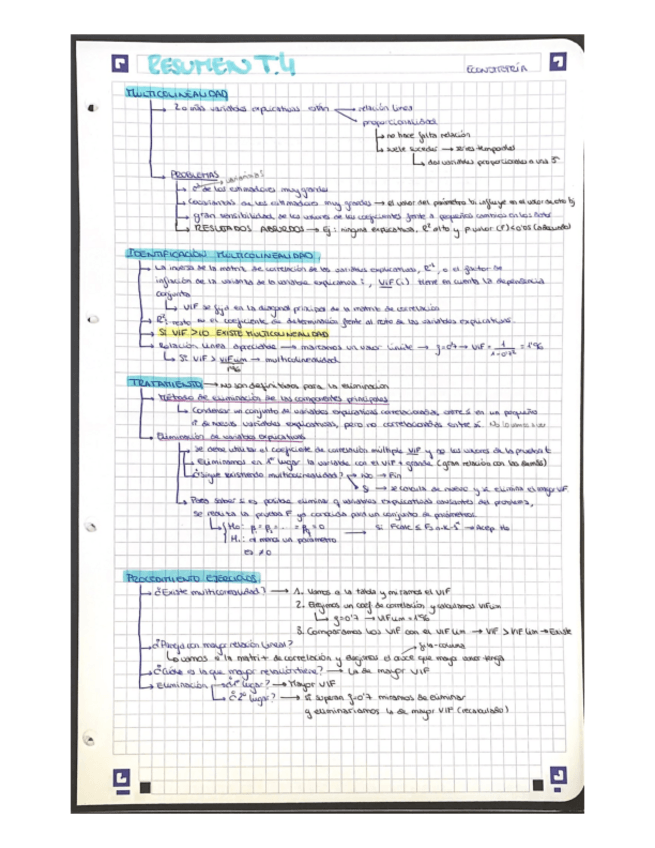 RESUMEN T.4
ECONOMETRÍA
MULTICOLINEALIDAD
2 o más variables explicativas están → relación lineal
proporcionalidad
no hace falta relación
suele suceder → series temporales
dos variables proporcionales a una 3ª
PROBLEMAS
varianzas
σ² de los estimadores muy grandes
Covarianzas de los estimadores muy grandes → el valor del parámetro bi influye en el valor de otro bj
gran sensibilidad de los valores de los coeficientes frente a pequeños cambios en los datos
RESULTADOS ABSURDOS → Ej: ninguna explicativa, R² alto y p valor (F) < 0'05 (adecuado)
IDENTIFICACIÓN MULTICOLINEALIDAD
La inversa de la matriz de correlación de las variables explicativas, R⁻¹, o el factor de
inflación de la varianza de la variable explicativa i, VIF(i) tiene en cuenta la dependencia
conjunta
VIF se fija en la diagonal principal de la matriz de correlación
R²i resto es el coeficiente de determinación frente al resto de las variables explicativas.
Si VIF > 10 EXISTE MULTICOLINEALIDAD
Relación lineal apreciable → marcamos un valor límite → ρ=0'7 → VIF = 1/1-0'7² = 1'96
Si VIF > VIFlim → multicolinealidad
1'96
TRATAMIENTO → No son definitivas para la eliminación
Método de eliminación de las componentes principales
Condensar un conjunto de variables explicativas correlacionadas, entre sí en un pequeño
nº de nuevas variables explicativas, pero no correlacionadas entre sí. No lo vamos a ver
Eliminación de variables explicativas
Se debe utilizar el coeficiente de correlación múltiple VIF y no los valores de la prueba t
Eliminamos en 1º lugar la variable con el VIF + grande (gran relación con las demás)
¿Sigue existiendo multicolinealidad? → No → Fin
Sí → se calcula de nuevo y se elimina el mayor VIF
Para saber si es posible eliminar q variables explicativas del problema,
se realiza la prueba F ya conocida para un conjunto de parámetros.
H₀: β = β₁ = ... = β = 0 → si Fcalc ≤ F → Acep H₀
H₁: al menos un parámetro
es ≠ 0
PROCEDIMIENTO EJERCICIOS
¿Existe multicolinealidad? → 1. Vamos a la tabla y miramos el VIF
2. Elegimos un coef de correlación y calculamos VIFlim
ρ=0'7 → VIFlim = 1'96
3. Comparamos los VIF con el VIF lim → VIF > VIF lim → Existe
¿Pareja con mayor relación lineal?
fila-columna
Vamos a la matriz de correlación y elegimos el cruce que mayor valor tenga
¿Cuál es la que mayor relación tiene? → La de mayor VIF
Eliminación → ¿1º lugar? → Mayor VIF
¿2º lugar? → Si superan ρ=0'7 miramos de eliminar
y eliminaríamos la de mayor VIF (recalculado)